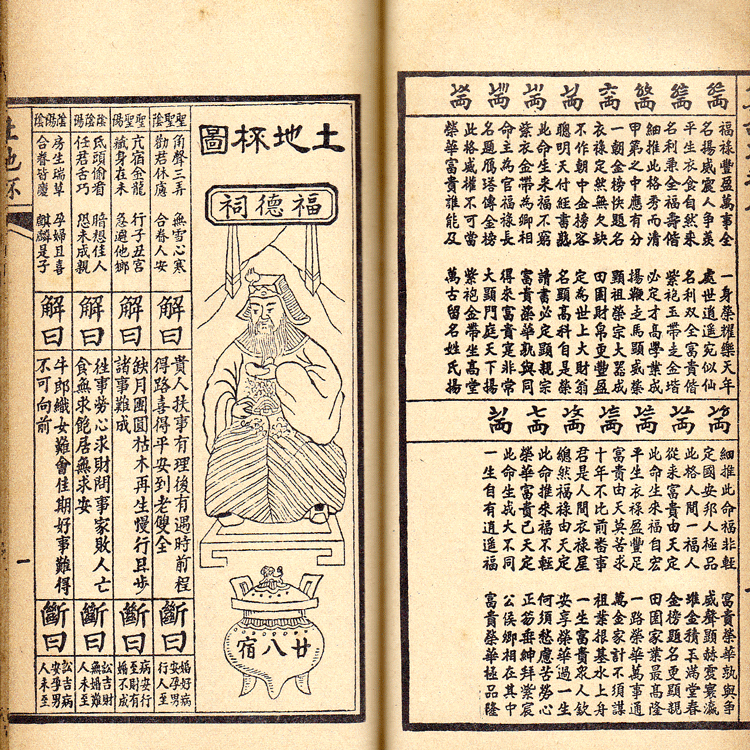 福祿豐盈萬事全 一身榮耀樂天年
名揚威震人爭羨 處世逍遥宛似仙
平生衣食自然來 名利雙全富貴偕
名利兼全福壽偕 紫袍玉帶走金堦
細推此格秀而清 必定才高學業成
甲第之中應有分 揚鞭走馬顯威榮
一朝金榜快題名 顯祖榮宗大器成
衣祿定然無欠缺 田園財帛更豐盈
不作朝中金榜客 定為世上大財翁
聰明天付經書熟 名顯高科自是榮
此命生來福不窮 讀書必定顯親宗
紫衣金帶為卿相 富貴榮華孰與同
命主為官福祿長 得來富貴寔非常
名題雁塔傳金榜 大顯門庭天下揚
此格威權不可當 紫袍金帶坐高堂
榮華富貴誰能及 萬古留名姓氏揚
細推此命福非輕 富貴榮華孰與爭
定國安邦人極品 威聲顯赫震寰瀛
此格人間一福人 堆金積玉滿堂春
從來富貴由天定 金榜題名更顯親
此命生來福自宏 田園家業最高隆
平生衣祿盈豐足 一路榮華萬事通
富貴由天莫苦求 萬金家計不須謀
十年不比前番事 祖業根基水上舟
君是人間衣祿星 一生富貴眾人欽
總然福祿由天定 安享榮華過一生
此命推來福不輕 何須愁慮苦勞心
榮華富貴已天定 正笏垂紳拜紫宸
此命生成大不同 公侯卿相在其中
一生自有逍遥福 富貴榮華極品隆
土地杯圖
福德祠
廿八宿
聖聖陰
角聲三弄 無雪心寒
勸君休慮 合眷人安
解曰
貴人扶事有理後有遇時前程
得路喜得平安到老雙全
斷曰
婚好病
安孕男
行人至
聖聖陽
亢宿金龍 行子丑宮
藏身在未 急避他鄉
解曰
缺月團圓枯木再生慢行且步
諸事難成
斷曰
病安行
至財有
婚不成
陰陰陽
氐頭偷看 暗想佳人
任君舌巧 恐未成親
解曰
往事勞心求財問事家敗人亡
食無求飽居無求安
斷曰
訟吉財
無婚難
人未至
陰陽陰
房生瑞草 孕婦且喜
合眷皆慶 麒麟是子
解曰
牛郎織女難會佳期好事難得
不可向前
斷曰
訟吉病
安孕男
人未至
一